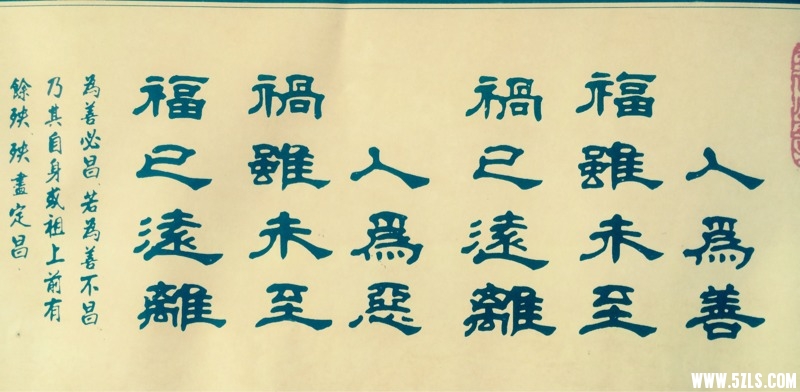 人爲善
福雖未至
禍已遠離
人爲惡
禍雖未至
福已遠離
為善必昌若為善不昌
乃其自身或祖上前有
餘殃殃盡定昌
WWW.5ZLS.COM